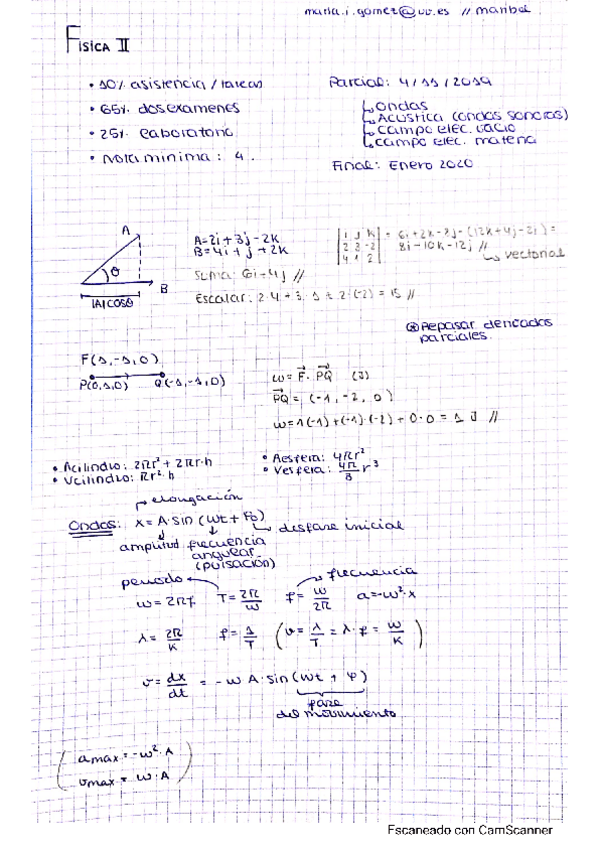 maria.i.gomez@uv.es // maribel
Física II
• 10% asistencia / tareas
• 65% dos examenes
• 25% laboratorio
• nota minima: 4.
Parcial: 4/11/2019
Ondas
Acústica (ondas sonoras)
campo eléc. vacío
campo eléc. materia
Final: Enero 2020
A
θ
B
|A|cosθ
A=2i+3j-2k
B=4i+j+2k
Suma: 6i+4j //
Escalar: 2·4+3·1+2·(-2)=15 //
i j k
2 3 -2
4 1 2
= 6i+2k-8j-(12k+4j-2i) =
8i-10k-12j //
vectorial
⊛ Repasar derivadas
parciales.
F(1,-1,0)
P(0,1,0) Q(-1,-1,0)
w = F · PQ (J)
PQ = (-1, -2, 0)
w=1(-1)+(-1)·(-2)+0·0=1 J //
• Acilindro: 2πr²+2πr·h
• Vcilindro: πr²·h
• Aesfera: 4πr²
• Vesfera: 4π/3 r³
elongación
Ondas: x=A·sin(ωt+φ₀) desfase inicial
amplitud frecuencia
angular
(pulsación)
periodo frecuencia
ω=2πf T=2π/ω f=ω/2π a=-ω²·x
λ=2π/K f=1/T (v=λ/T=λ·f=ω/K)
v=dx/dt = -ωA·sin(ωt+φ)
fase
del movimiento
(amax=-ω²·A
vmax=ω·A)
Escaneado con CamScanner